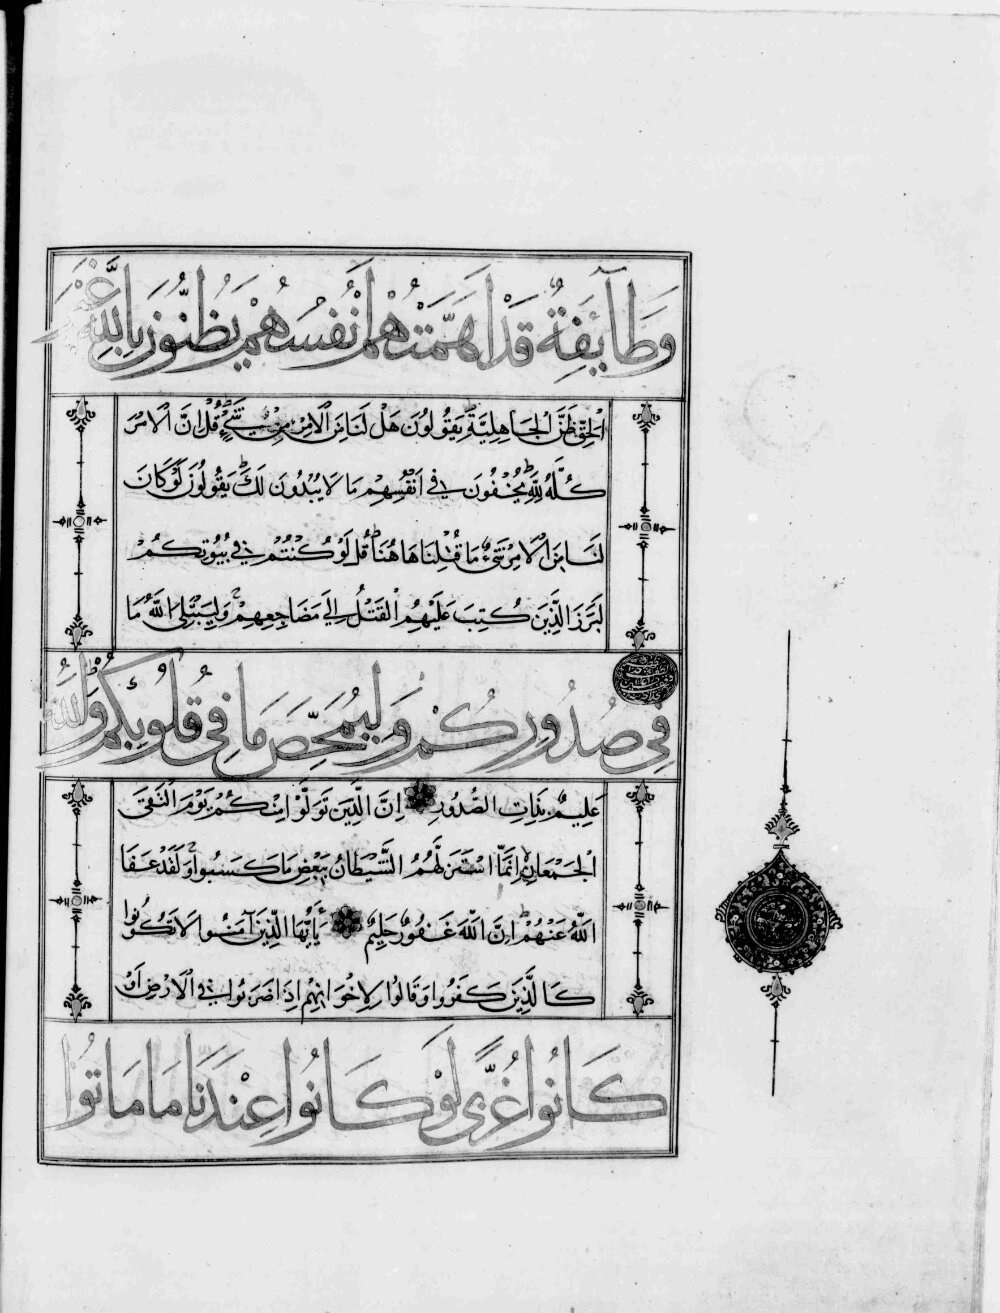 وَطَآئِفَةٌ قَدْ اَهَمَّتْهُمْ اَنْفُسُهُمْ يَظُنُّونَ بِاللّٰهِ غَيْرَ
الْحَقِّ ظَنَّ الْجَاهِلِيَّةِ يَقُولُونَ هَلْ لَنَا مِنَ الْاَمْرِ مِنْ شَيْءٍ قُلْ اِنَّ الْاَمْرَ
كُلَّهُ لِلّٰهِ يُخْفُونَ فِي اَنْفُسِهِمْ مَا لَا يُبْدُونَ لَكَ يَقُولُونَ لَوْ كَانَ
لَنَا مِنَ الْاَمْرِ شَيْءٌ مَا قُتِلْنَا هَاهُنَا قُلْ لَوْ كُنْتُمْ فِي بُيُوتِكُمْ
لَبَرَزَ الَّذِينَ كُتِبَ عَلَيْهِمُ الْقَتْلُ اِلَى مَضَاجِعِهِمْ وَلِيَبْتَلِيَ اللّٰهُ مَا
فِي صُدُورِكُمْ وَلِيُمَحِّصَ مَا فِي قُلُوبِكُمْ وَاللّٰهُ
عَلِيمٌ بِذَاتِ الصُّدُورِ اِنَّ الَّذِينَ تَوَلَّوْا مِنْكُمْ يَوْمَ الْتَقَى
الْجَمْعَانِ اِنَّمَا اسْتَزَلَّهُمُ الشَّيْطَانُ بِبَعْضِ مَا كَسَبُوا وَلَقَدْ عَفَا
اللّٰهُ عَنْهُمْ اِنَّ اللّٰهَ غَفُورٌ حَلِيمٌ يَآاَيُّهَا الَّذِينَ آمَنُوا لَا تَكُونُوا
كَالَّذِينَ كَفَرُوا وَقَالُوا لِاِخْوَانِهِمْ اِذَا ضَرَبُوا فِي الْاَرْضِ اَوْ
كَانُوا غُزًّى لَوْ كَانُوا عِنْدَنَا مَا مَاتُوا